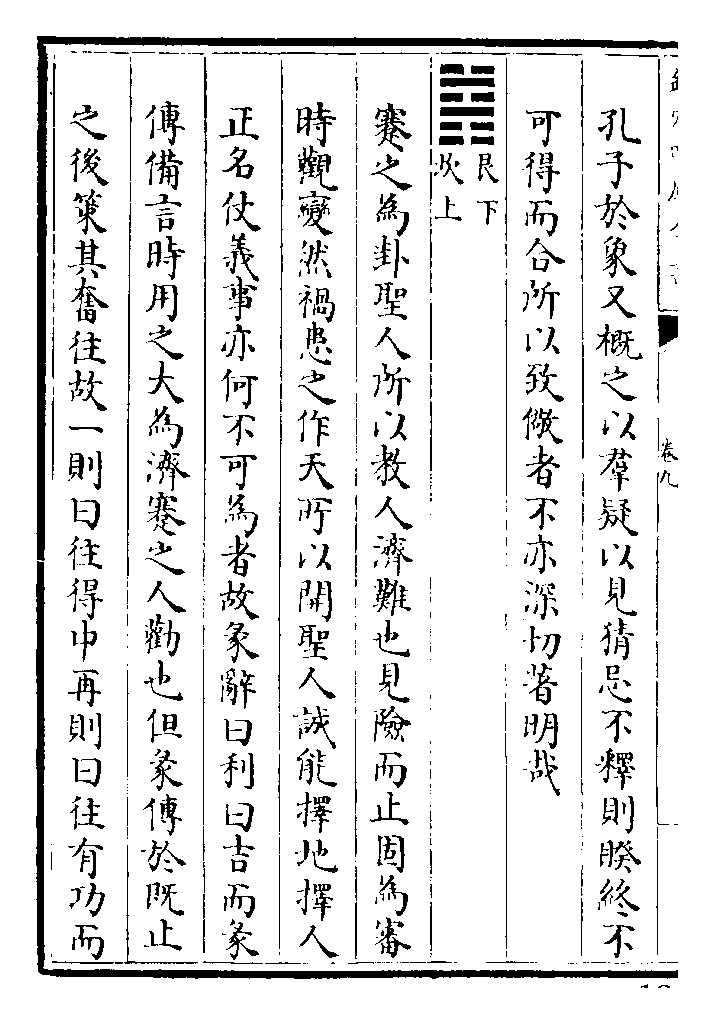 孔子於象又概之以羣疑以見猜忌不釋則睽終不
可得而合所以致儆者不亦深切著明哉
艮下
坎上
蹇之為卦聖人所以教人濟難也見險而止固為審
時觀變然禍患之作天所以開聖人誠能擇地擇人
正名仗義事亦何不可為者故彖辭曰利曰吉而彖
傳備言時用之大為濟蹇之人勸也但彖傳於既止
之後策其奮往故一則曰往得中再則曰往有功而
卷九